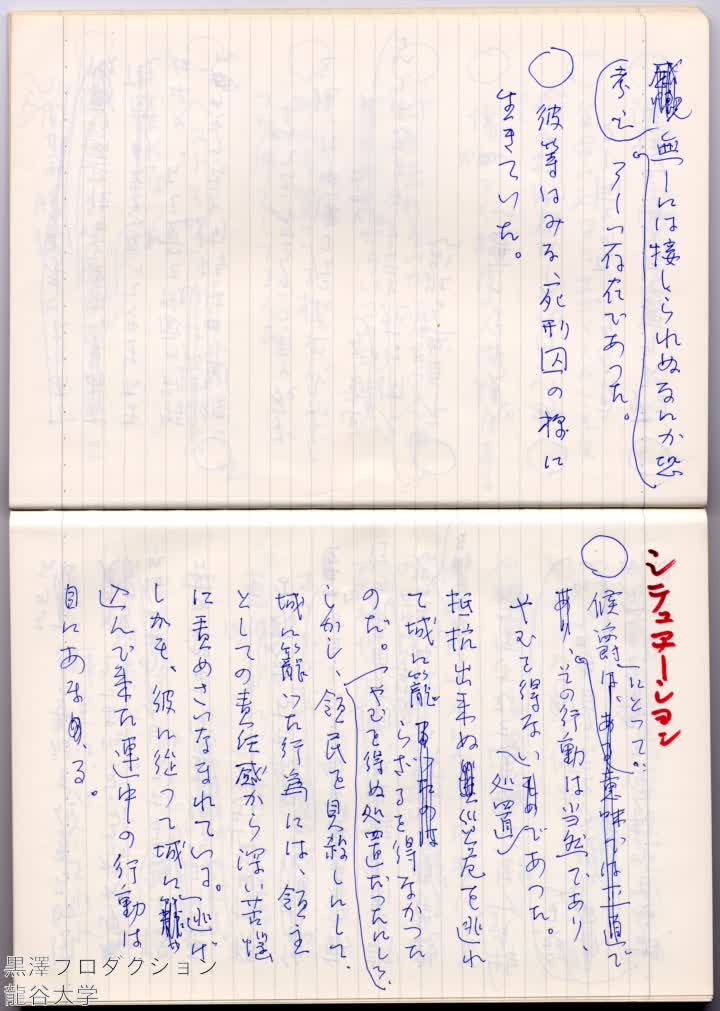 無しには接しられぬなにか恐
ろしい存在であった。
○ 彼等はみな、死刑囚の様に
生きていた。
シテュアーション
○ 侯爵にとって、
その行動は当然であり、
やむを得ない処置であった。
抵抗出来ぬ災厄を逃れ
て城に籠らざるを得なかった
のだ。(やむを得ぬ処置だったにしろ)
しかし、領民を見殺しにして、
城に籠った行為には、領主
としての責任感から深い苦悩
に責めさいなまれている。
しかも、彼に従って城に逃げ
込んで来た連中の行動は
目にあまる。
黒澤プロダクション
龍谷大学